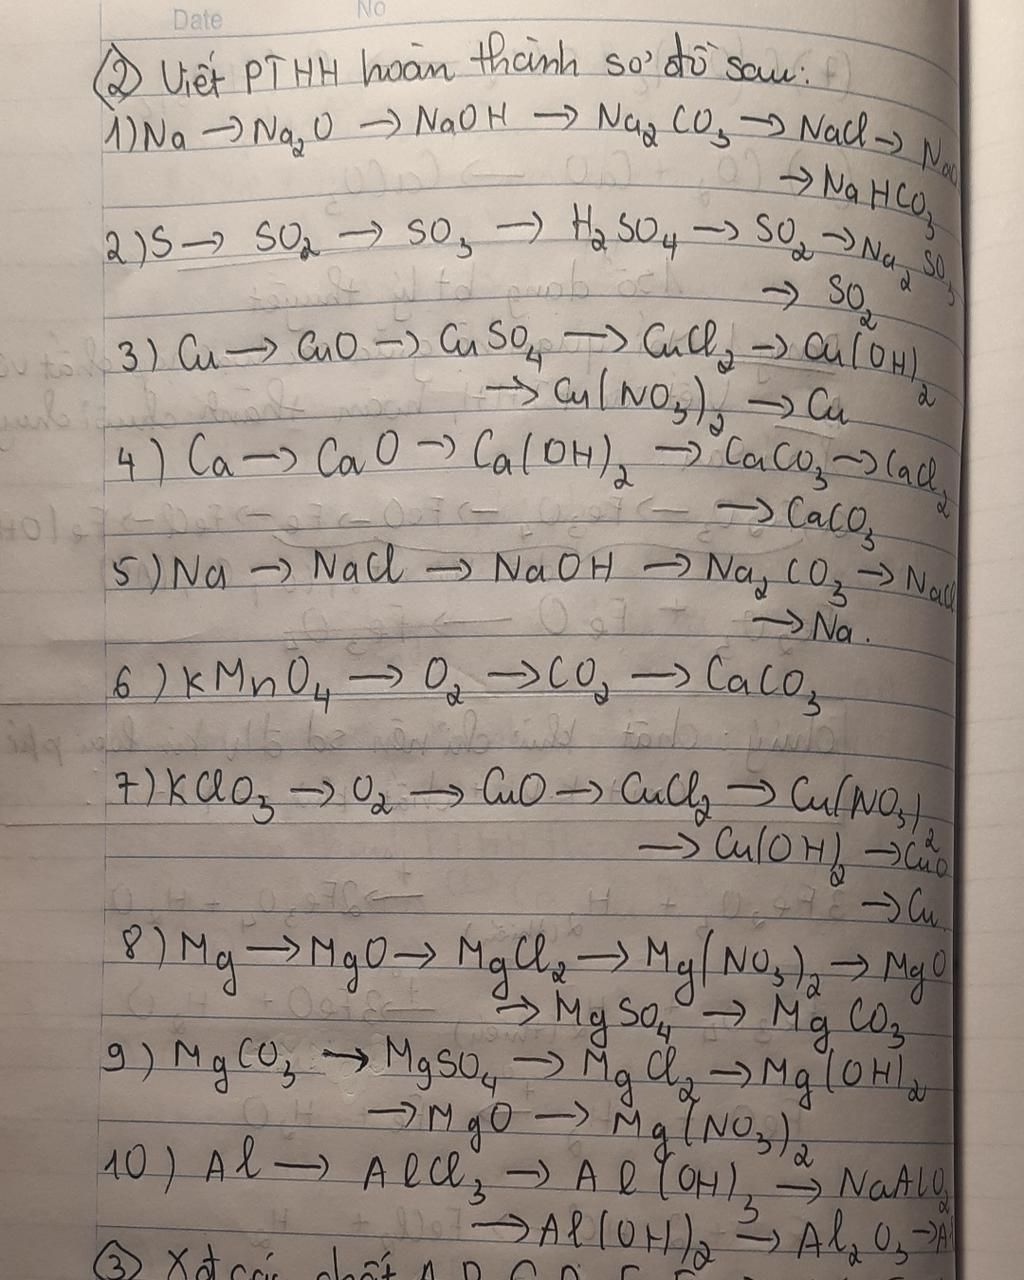 Date No
② Viết PTHH hoàn thành sơ đồ sau:
1) Na → Na₂O → NaOH → Na₂CO₃ → NaCl →
→ NaHCO₃
2) S → SO₂ → SO₃ → H₂SO₄ → SO₂ → Na₂SO₃
→ SO₂
3) Cu → CuO → CuSO₄ → CuCl₂ → Cu(OH)₂
→ Cu(NO₃)₂ → Cu
4) Ca → CaO → Ca(OH)₂ → CaCO₃ → CaCl₂
→ CaCO₃
5) Na → NaCl → NaOH → Na₂CO₃ → NaCl
→ Na.
6) KMnO₄ → O₂ → CO₂ → CaCO₃
7) KClO₃ → O₂ → CuO → CuCl₂ → Cu(NO₃)₂
→ Cu(OH)₂ → CuO
→ Cu
8) Mg → MgO → MgCl₂ → Mg(NO₃)₂ → MgO
→ MgSO₄ → MgCO₃
9) MgCO₃ → MgSO₄ → MgCl₂ → Mg(OH)₂
→ MgO → Mg(NO₃)₂
10) Al → AlCl₃ → Al(OH)₃ → NaAlO₂
→ Al(OH)₂ → Al₂O₃ → Al
③ Xét các chất A, B, C, D,